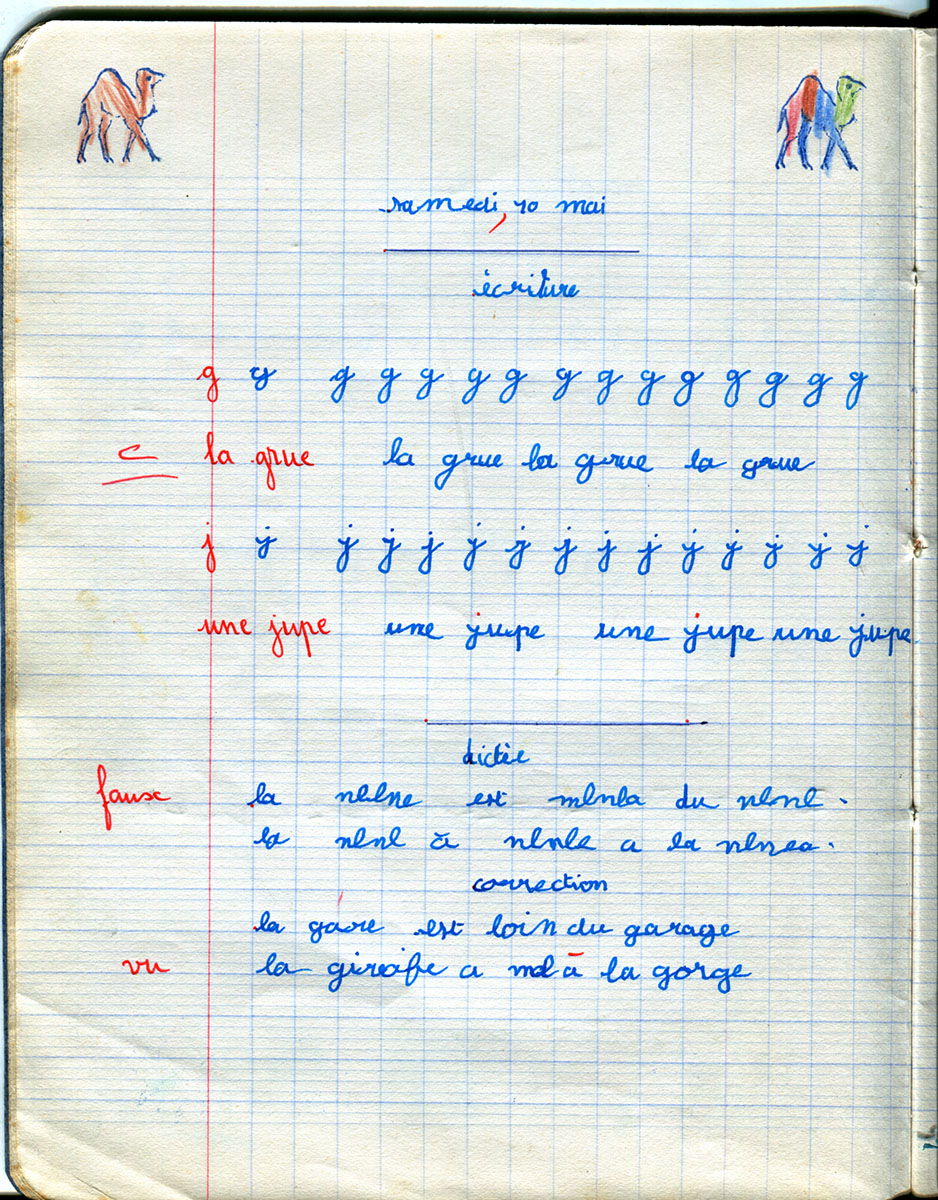 samedi, 10 mai
écriture
g g g g g g g g g g g g g g g
c la grue la grue la grue la grue
j j j j j j j j j j j j j j j
une jupe une jupe une jupe une jupe
dictée
faux la nlune est mlnla du nlnl.
la nlnl à nlnle a la nlnea.
correction
la gare est loin du garage
vu la girafe a mal à la gorge